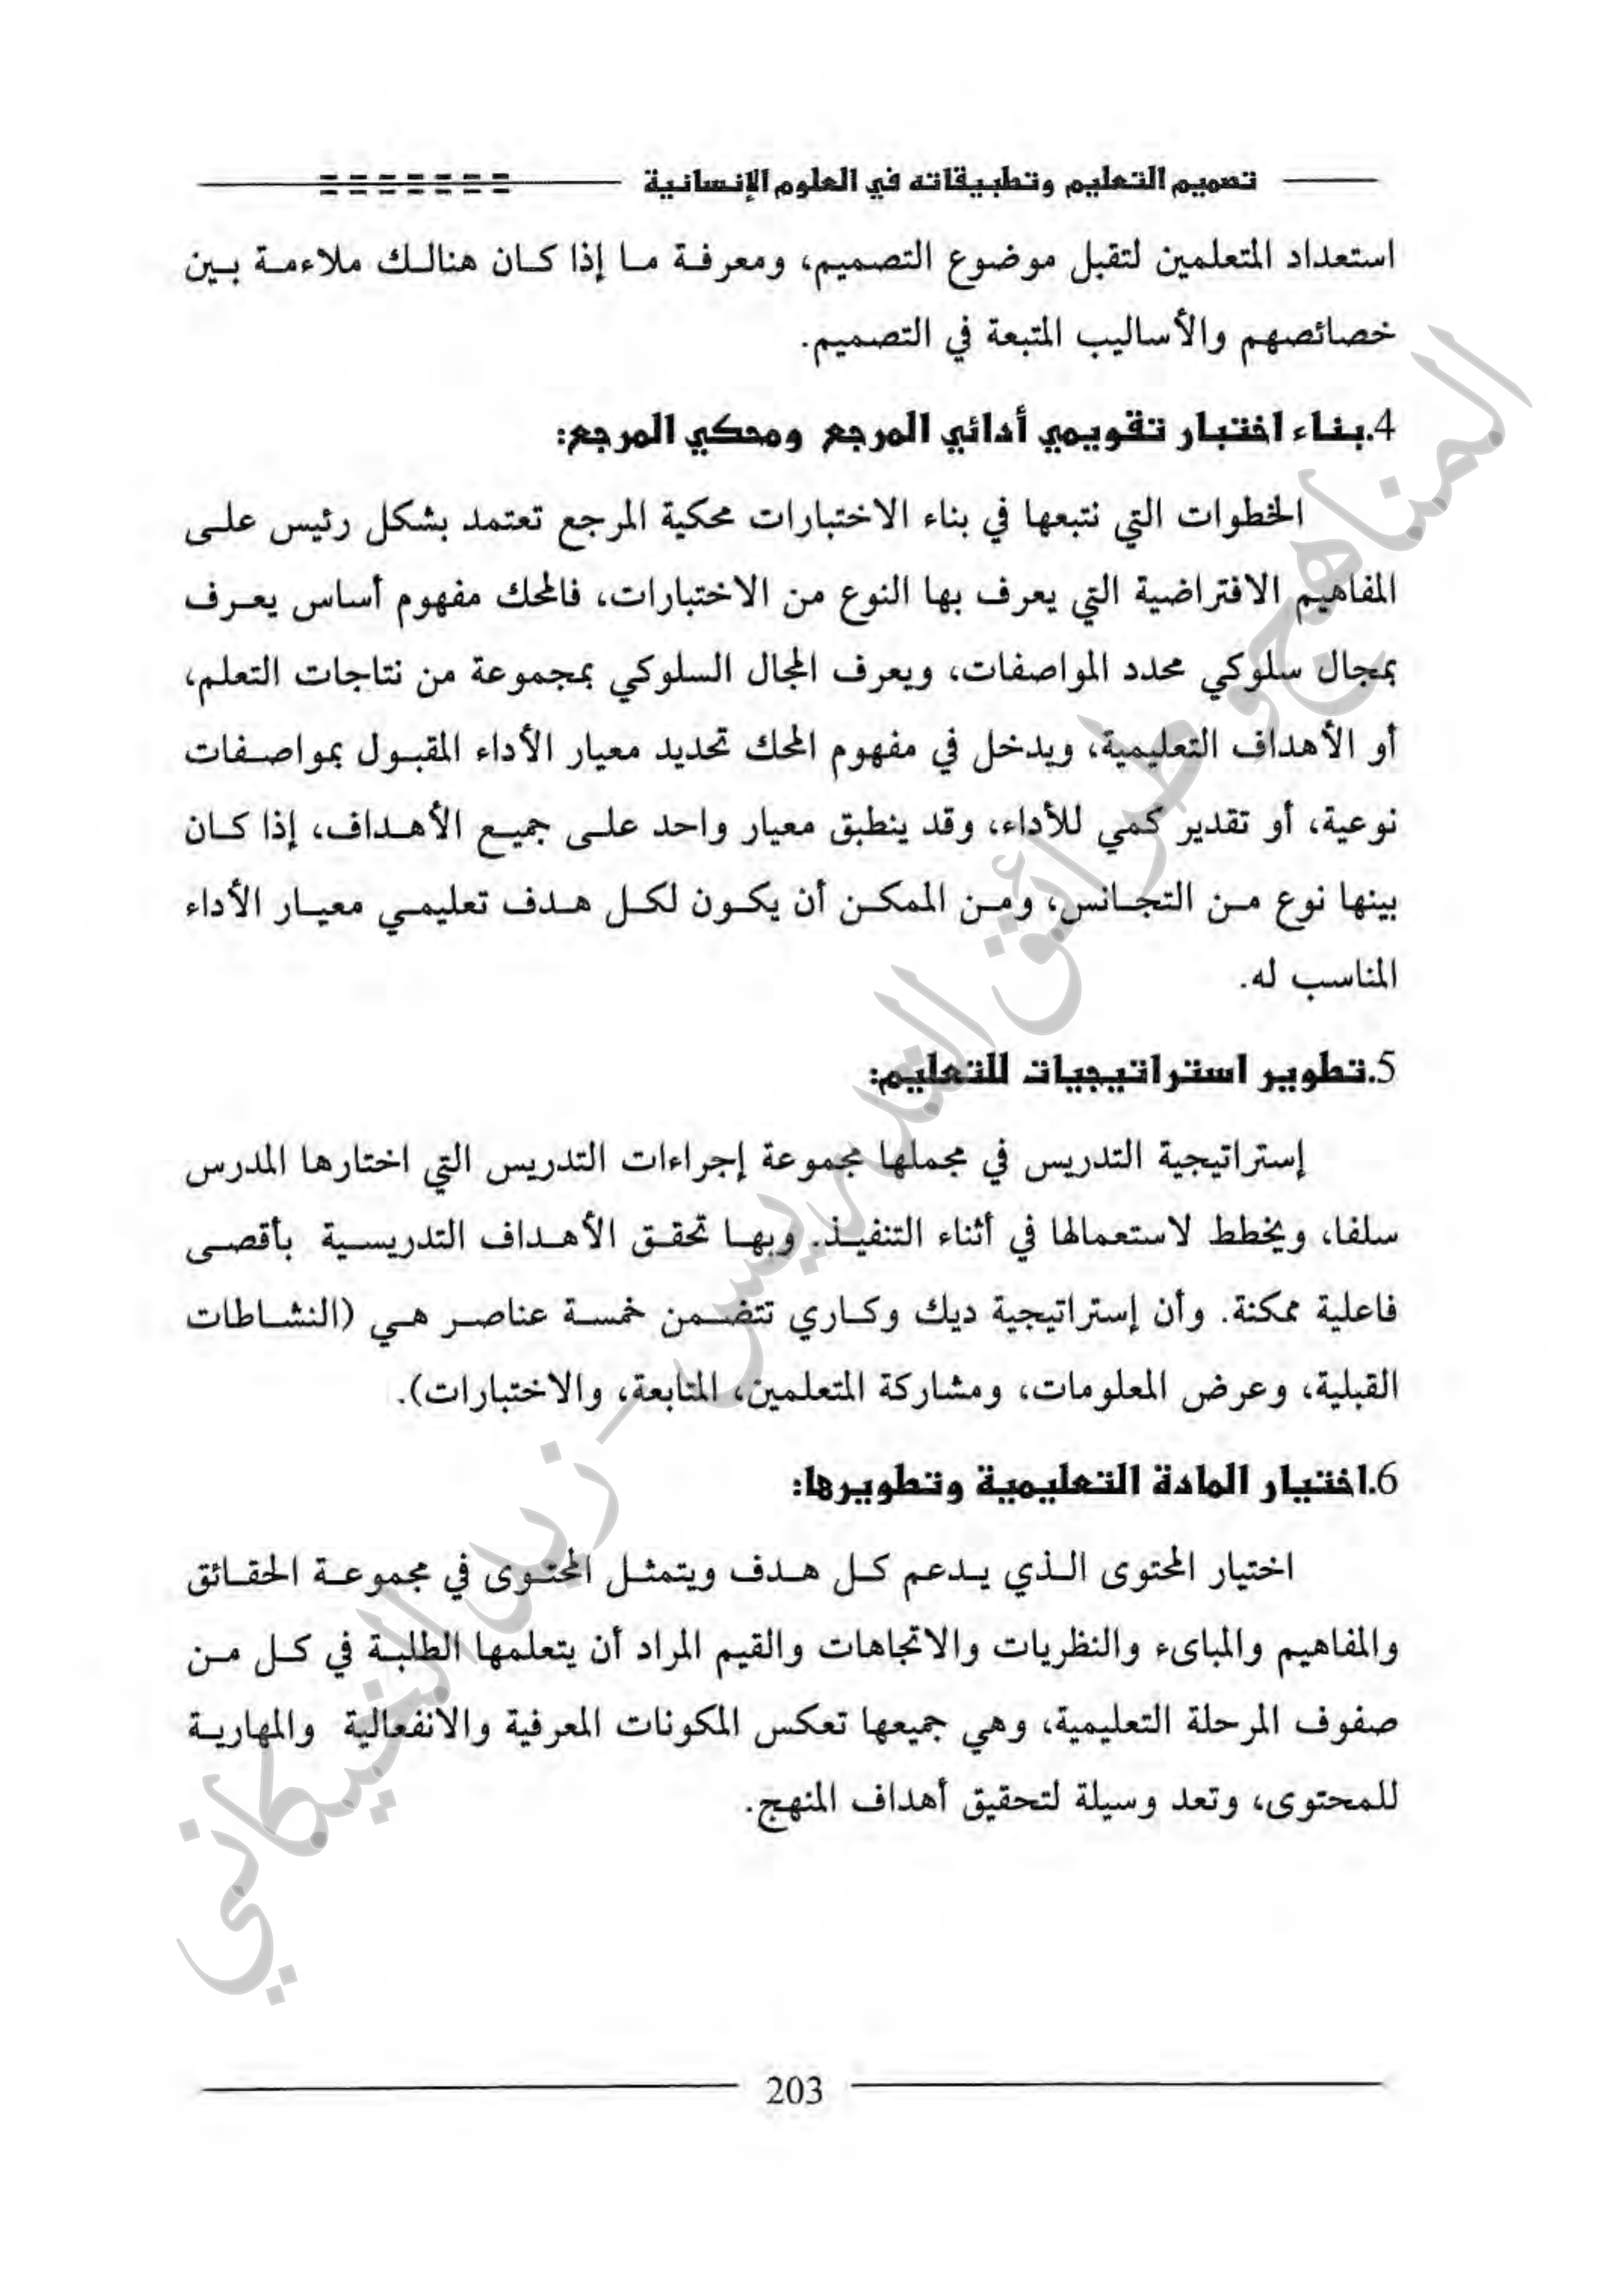 تصميم التعليم وتطبيقاته في العلوم الإنسانية
استعداد المتعلمين لتقبل موضوع التصميم، ومعرفة ما إذا كان هنالك ملاءمة بين
خصائصهم والأساليب المتبعة في التصميم.
4.بناء اختبار تقويمي أدائي المرجع ومحكي المرجع:
الخطوات التي نتبعها في بناء الاختبارات محكية المرجع تعتمد بشكل رئيس على
المفاهيم الافتراضية التي يعرف بها النوع من الاختبارات، فالمحك مفهوم أساس يعرف
بمجال سلوكي محدد المواصفات، ويعرف المجال السلوكي بمجموعة من نتاجات التعلم،
أو الأهداف التعليمية، ويدخل في مفهوم المحك تحديد معيار الأداء المقبول بمواصفات
نوعية، أو تقدير كمي للأداء، وقد ينطبق معيار واحد على جميع الأهداف، إذا كان
بينها نوع من التجانس، ومن الممكن أن يكون لكل هدف تعليمي معيار الأداء
المناسب له.
5.تطوير استراتيجيات للتعليم:
إستراتيجية التدريس في مجملها مجموعة إجراءات التدريس التي اختارها المدرس
سلفا، ويخطط لاستعمالها في أثناء التنفيذ. وبها تحقق الأهداف التدريسية بأقصى
فاعلية ممكنة. وأن إستراتيجية ديك وكاري تتضمن خمسة عناصر هي (النشاطات
القبلية، وعرض المعلومات، ومشاركة المتعلمين، المتابعة، والاختبارات).
6.اختيار المادة التعليمية وتطويرها:
اختيار المحتوى الذي يدعم كل هدف ويتمثل المحتوى في مجموعة الحقائق
والمفاهيم والمبادىء والنظريات والاتجاهات والقيم المراد أن يتعلمها الطلبة في كل من
صفوف المرحلة التعليمية، وهي جميعها تعكس المكونات المعرفية والانفعالية والمهارية
للمحتوى، وتعد وسيلة لتحقيق أهداف المنهج.
203
المناهج وطرائق التدريس - زيد الخيكاني